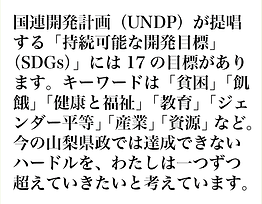 国連開発計画（UNDP）が提唱
する「持続可能な開発目標」
（SDGs）」には 17 の目標があり
ます。キーワードは「貧困」「飢
餓」「健康と福祉」「教育」「ジェ
ンダー平等」「産業」「資源」など。
今の山梨県政では達成できない
ハードルを、わたしは一つずつ
超えていきたいと考えています。